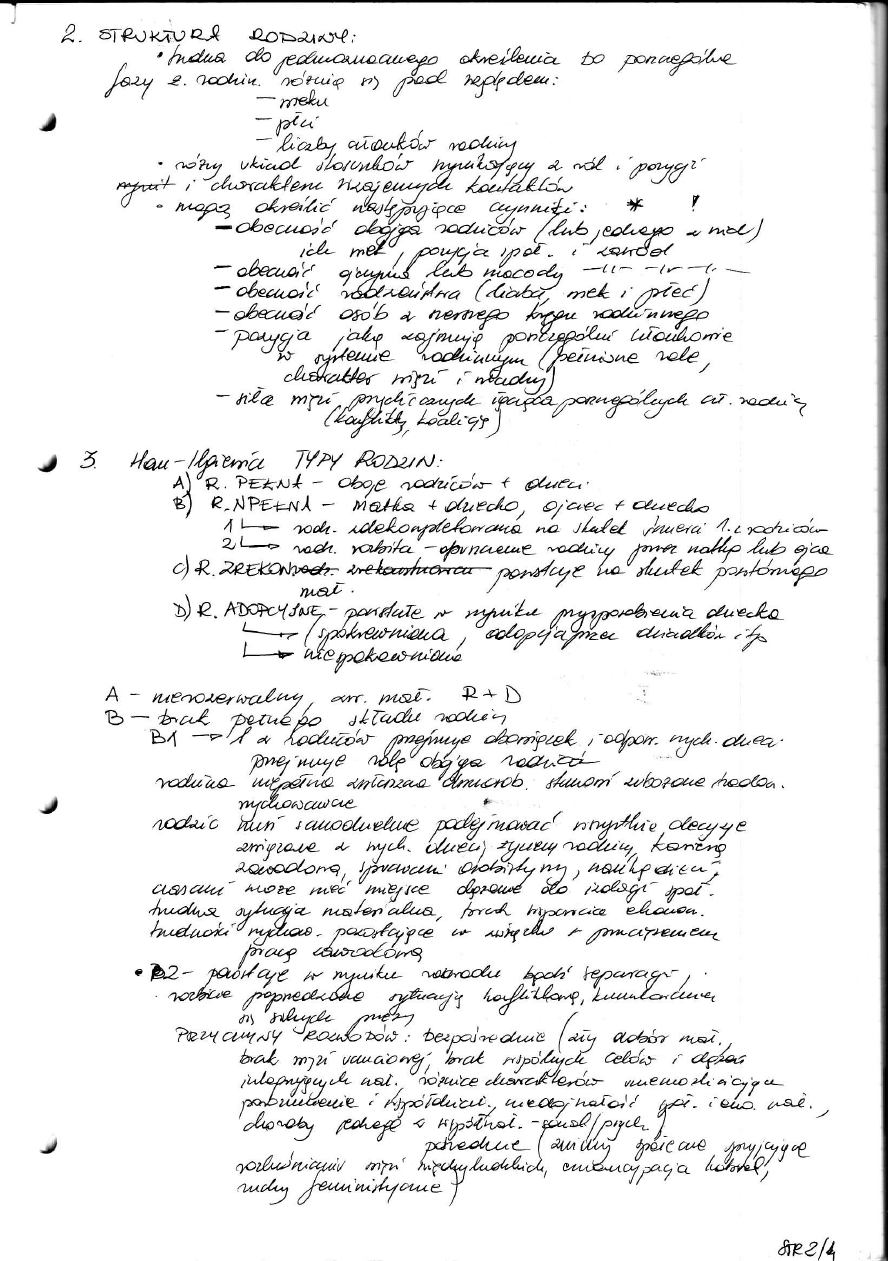 2. STRUKTURA RODZINY:
• trudna do jednoznacznego określenia bo poszczególne
fazy ż. rodzin. różnią się pod względem:
– wieku
– płci
– liczby członków rodziny
• różny układ stosunków wynikający z ról i pozycji
i charakteru wzajemnych kontaktów
• mogą określić następujące czynniki: * !
– obecność obojga rodziców (lub jednego z nich)
ich wiek, pozycja społ. i zawód
– obecność ojczyma lub macochy –||– –||– –||–
– obecność rodzeństwa (liczba, wiek i płeć)
– obecność osób z szerszego kręgu rodzinnego
– pozycja jaką zajmują poszczególni członkowie
w systemie rodzinnym (pełnione role,
charakter więzi i władzy)
– siła więzi psychicznych łącząca poszczególnych czł. rodziny
(konflikty, koalicje)
3. TYPY RODZIN:
A) R. PEŁNA – oboje rodziców + dzieci
B) R. NPEŁNA – matka + dziecko, ojciec + dziecko
1 → rodz. zdekompletowana na skutek śmierci 1. z rodziców
2 → rodz. rozbita – opuszczenie rodziny przez matkę lub ojca
C) R. ZREKON powstaje na skutek powtórnego
małż.
D) R. ADOPCYJNE – powstałe w wyniku przysposobienia dziecka
→ (spokrewniona, adopcja przez dziadków itp
→ niespokrewniona
A – nierozerwalny zw. małż. R + D
B – brak pełnego składu rodziny
B1 → 1 z rodziców przejmuje obowiązek i odpow. wych. dzieci
przejmuje rolę obojga rodziców
rodzina niepełna zubożone
wychowawcze
rodzic musi samodzielnie podejmować wszystkie decyzje
związane z wych. dzieci, życiem rodziny, karierą
zawodową, sprawami osobistymi,
czasami może mieć miejsce dążenie do izolacji społ.
trudna sytuacja materialna, brak wsparcia ekonom.
trudności wychow. powstające w związku z
pracą zawodową
• B2 – powstaje w wyniku rozwodu bądź separacji,
rozbicie poprzedzone sytuacją konfliktową,
się silnych
PRZYCZYNY ROZWODÓW: bezpośrednie (zły dobór małż.,
brak więzi uczuciowej, brak wspólnych celów i dążeń
integrujących małż., różnice charakterów uniemożliwiające
porozumienie i współdział., niedojrzałość małż.,
choroby jednego z współmał. – /psych)
pośrednie (zmiany społeczne sprzyjające
rozluźnianiu więzi międzyludzkich, emancypacja kobiet,
ruchy feministyczne)
STR 2/4